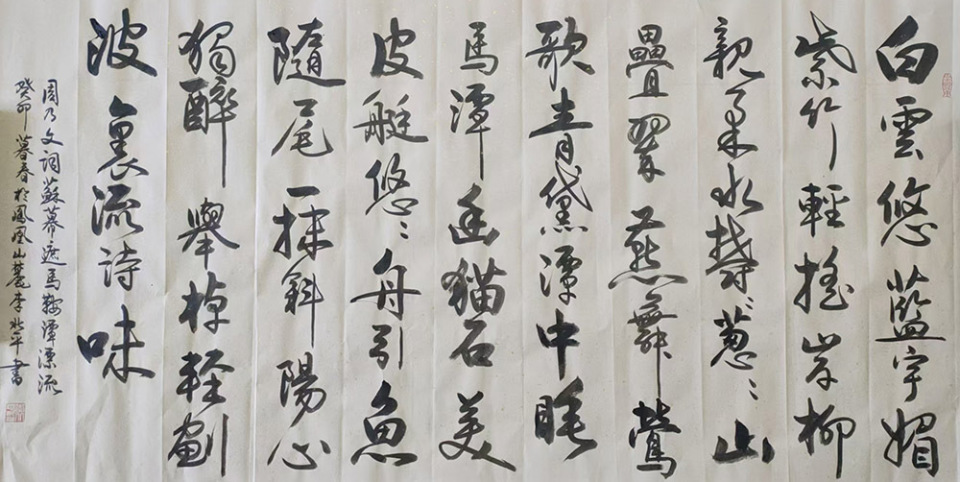 白雲悠藍宇媚
紫竹輕搖岸柳
親柔水鬱〻蔥〻山
疊翠燕舞鶯
歌青黛潭中睡
馬潭幽貓石美
皮艇悠〻舟引魚
隨尾一抹斜陽心
獨醉舉棹輕劃
波裏流詩味
周乃文詞蘇幕遮馬鞍潭漂流
癸卯暮春於鳳凰山麓李平書